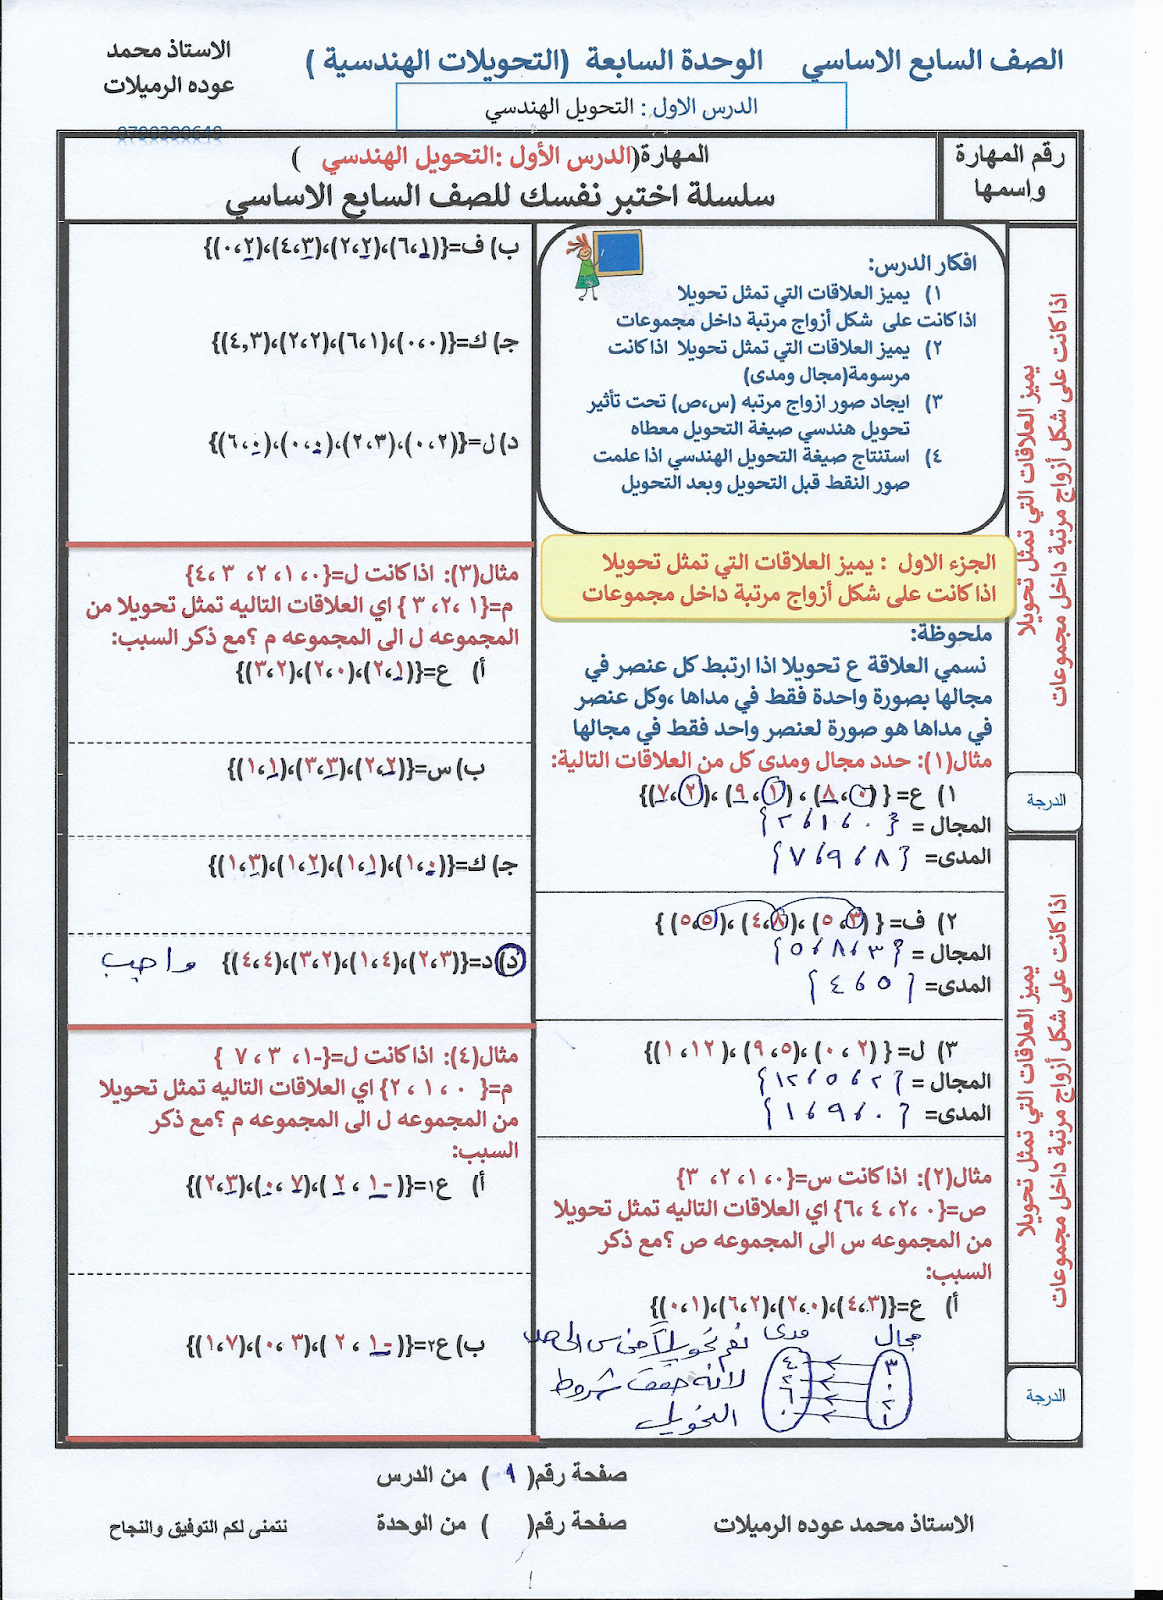 الصف السابع الاساسي الوحدة السابعة (التحويلات الهندسية )
الاستاذ محمد
عوده الرميلات
الدرس الاول : التحويل الهندسي
رقم المهارة
واسمها
المهارة(الدرس الأول :التحويل الهندسي )
سلسلة اختبر نفسك للصف السابع الاساسي
يميز العلاقات التي تمثل تحويلا
اذا كانت على شكل أزواج مرتبة داخل مجموعات
الدرجة
يميز العلاقات التي تمثل تحويلا
اذا كانت على شكل أزواج مرتبة داخل مجموعات
الدرجة
افكار الدرس:
١) يميز العلاقات التي تمثل تحويلا
اذا كانت على شكل أزواج مرتبة داخل مجموعات
٢) يميز العلاقات التي تمثل تحويلا اذا كانت
مرسومة(مجال ومدى)
٣) ايجاد صور ازواج مرتبه (س،ص) تحت تأثير
تحويل هندسي صيغة التحويل معطاه
٤) استنتاج صيغة التحويل الهندسي اذا علمت
صور النقط قبل التحويل وبعد التحويل
الجزء الاول : يميز العلاقات التي تمثل تحويلا
اذا كانت على شكل أزواج مرتبة داخل مجموعات
ملحوظة:
نسمي العلاقة ع تحويلا اذا ارتبط كل عنصر في
مجالها بصورة واحدة فقط في مداها ،وكل عنصر
في مداها هو صورة لعنصر واحد فقط في مجالها
مثال(١): حدد مجال ومدى كل من العلاقات التالية:
١) ع= { (٠،٨) ، (١،٩) ،(٢،٧)}
المجال = { ٠ ، ١ ، ٢ }
المدى= { ٨ ، ٩ ، ٧ }
٢) ف= { (٣،٥) ،(٨،٤) ،(٥،٥) }
المجال = { ٣ ، ٨ ، ٥ }
المدى= { ٥ ، ٤ }
٣) ل= { (٢ ،٠) ،(٥،٩) ،(١٢،١)}
المجال = { ٢ ، ٥ ، ١٢ }
المدى= { ٠ ، ٩ ، ١ }
مثال(٢): اذا كانت س={٠، ١، ٢، ٣}
ص={٠ ،٢، ٤ ،٦} اي العلاقات التاليه تمثل تحويلا
من المجموعه س الى المجموعه ص ؟مع ذكر
السبب:
أ) ع={(٣،٤)،(٠،٢)،(٢،٦)،(١،٠)}
مجال مدى
٣ ٤
٠ ٢
٢ ٦
١ ٠
نعم تحويلاً من س الى ص
لانه حقق شروط
التحويل
ب) ف={(١،٦)،(٢،٢)،(٣،٤)،(٢،٠)}
جـ) ك={(٠،٠)،(١،٦)،(٢،٢)،(٤,٣)}
د) ل={(٢،٠)،(٣،٢)،(٠،٠)،(٠،٦)}
مثال(٣): اذا كانت ل={٠، ١، ٢، ٣ ،٤}
م={١ ،٢، ٣ } اي العلاقات التاليه تمثل تحويلا من
المجموعه ل الى المجموعه م ؟مع ذكر السبب:
أ) ع={(١،٢)،(٠،٢)،(٢،٣)}
ب) س={(٢،٢)،(٣،٣)،(١،١)}
جـ) ك={(٠،١)،(١،١)،(٢،١)،(٣،١)}
د) د={(٣،٢)،(٤،١)،(٢،٣)،(٤،٤)} واجب
مثال(٤): اذا كانت ل={-١، ٣ ، ٧ }
م={ ٠ ، ١ ، ٢} اي العلاقات التاليه تمثل تحويلا
من المجموعه ل الى المجموعه م ؟مع ذكر
السبب:
أ) ع١={(-١ ، ٢ )،(٧ ،٠)،(٣،٢)}
ب) ع٢={(-١ ، ٢ )،(٣ ،٠)،(٧،١)}
صفحة رقم( ١ ) من الدرس
الاستاذ محمد عوده الرميلات صفحة رقم( ) من الوحدة نتمنى لكم التوفيق والنجاح